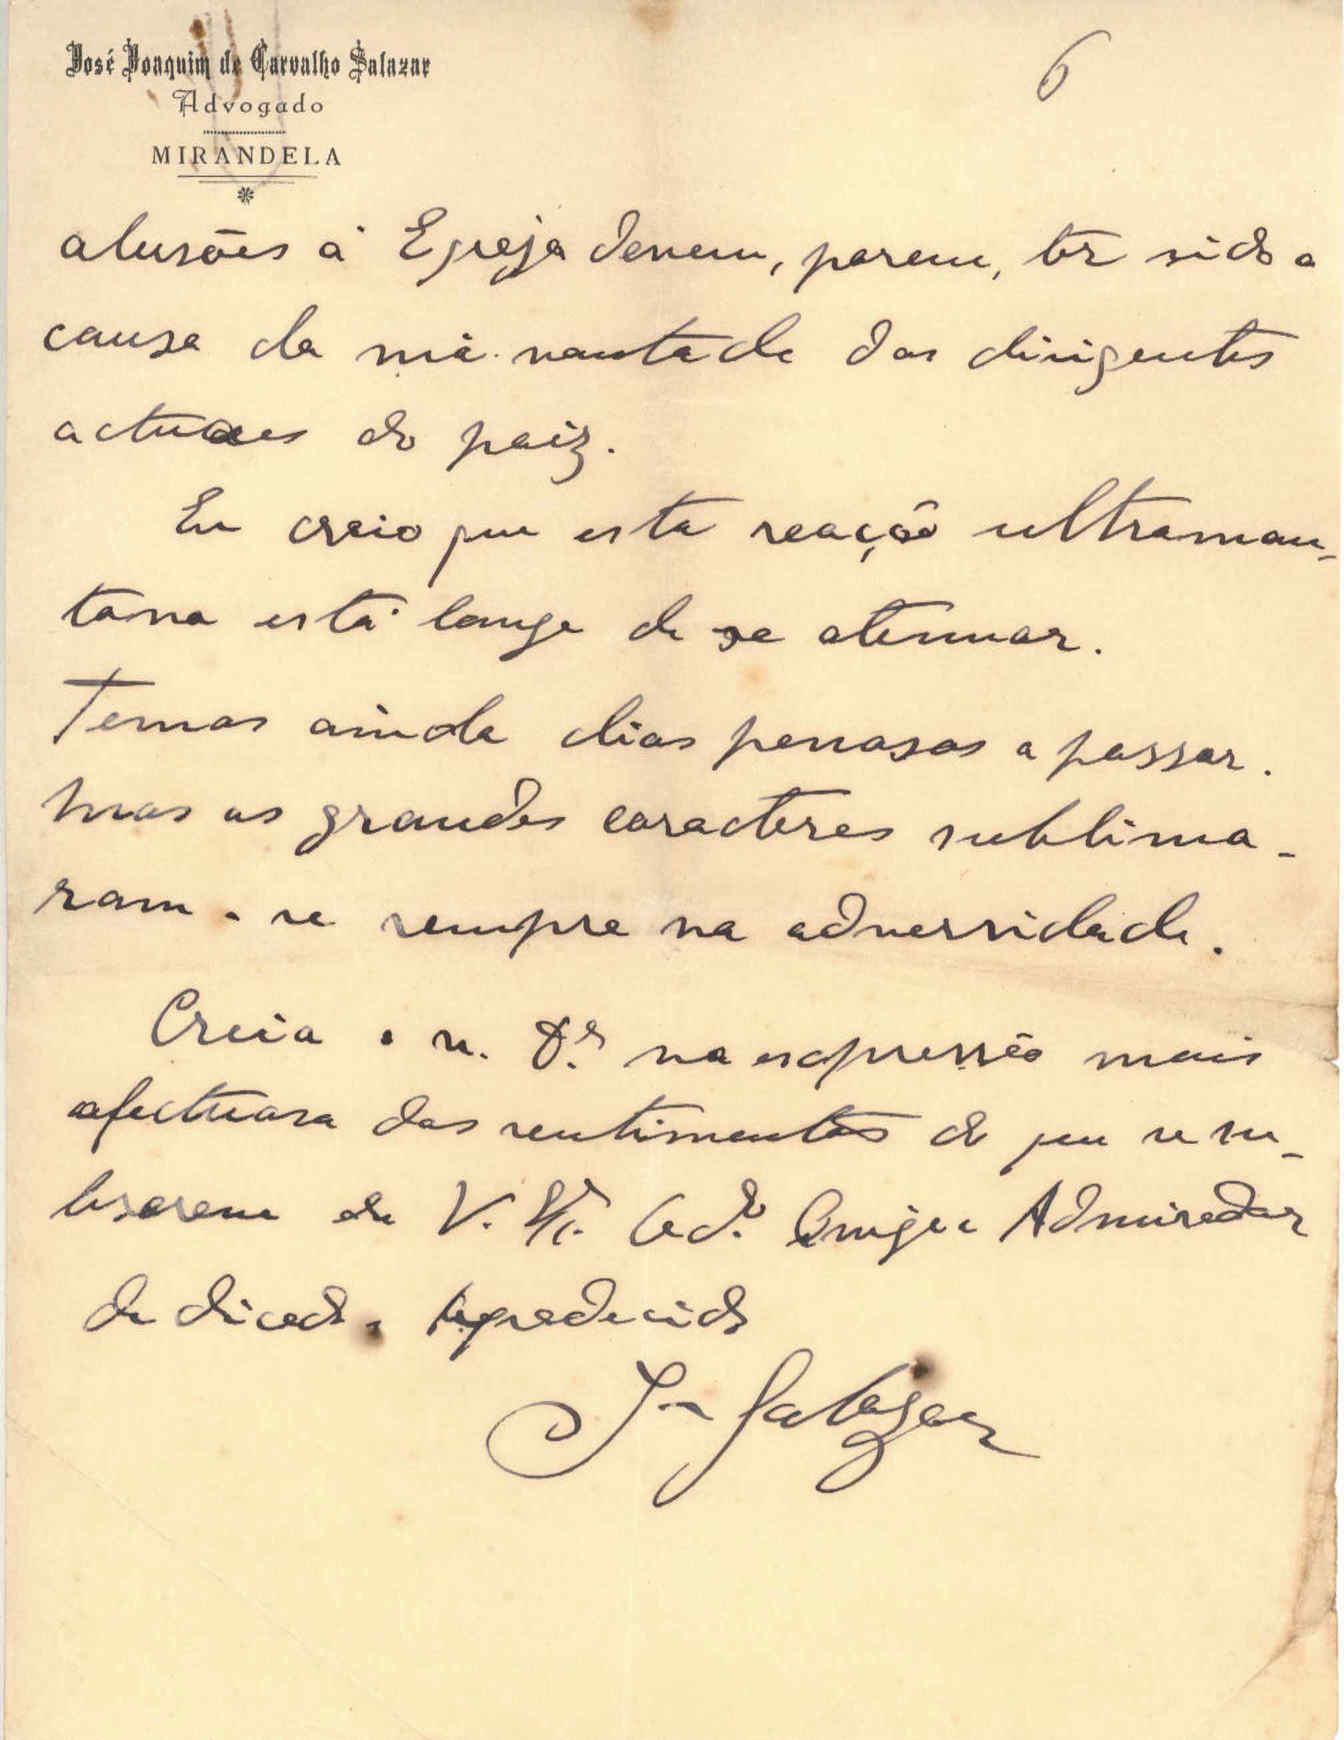 José Joaquim de Carvalho Salazar
Advogado
MIRANDELA
6
alusões á Egreja devem, porem, ter sido a
causa da má vontade dos dirigentes
actuaes do paiz.
Eu creio que esta reação ultramon-
tana está longe de se atenuar.
Temos ainda dias penosos a passar.
Mas os grandes caracteres sublima-
ram-se sempre na adversidade.
Creia o sr. Dr. na expressão mais
afectuosa dos sentimentos do que se su-
bscreve de V. Cr.do Amigo e Admirador
dedicado e Agradecido
J. Salazar